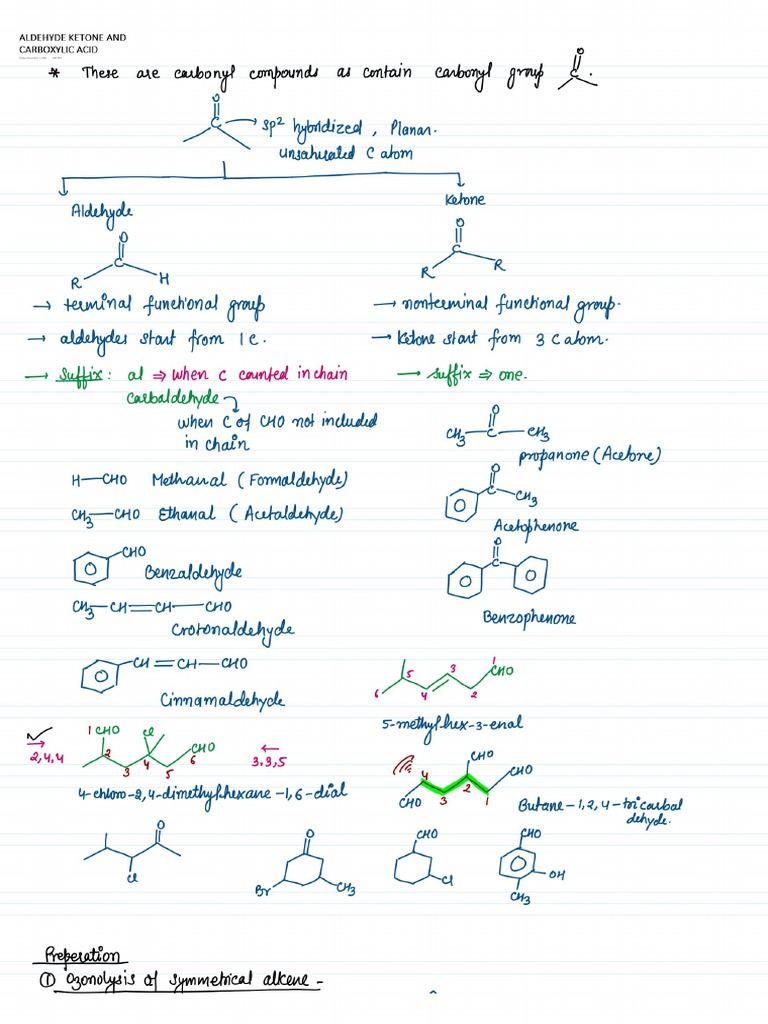 ALDEHYDE KETONE AND
CARBOXYLIC ACID
* These are carbonyl compounds as contain carbonyl group O C .
O
C → sp2 hybridized, Planar.
unsaturated C atom
Aldehyde
Ketone
O
C
R H
O
C
R R
→ terminal functional group
→ nonterminal functional group.
→ aldehydes start from 1C.
→ Ketone start from 3 C atom.
→ Suffix: al ⇒ when C counted in chain
→ suffix ⇒ one.
carbaldehyde
when C of CHO not included
in chain
O
CH3—C—CH3
propanone (Acetone)
H—CHO Methanal (Formaldehyde)
O
C—CH3
Acetophenone
CH3—CHO Ethanal (Acetaldehyde)
CHO
Benzaldehyde
O
C
Benzophenone
CH3—CH=CH—CHO
Crotonaldehyde
CH=CH—CHO
Cinnamaldehyde
6 5 4 3 2 1 CHO
5-methylhex-3-enal
→ 2,4,4
1 CHO Cl CHO
2 3 4 5 6
← 3,3,5
4-chloro-2,4-dimethylhexane-1,6-dial
CHO CHO
4 3 2 1
CHO
Butane-1,2,4-tricarbal
dehyde.
O
Cl
O
Br CH3
CHO
Cl
CHO
OH
CH3
Preperation
① Ozonolysis of symmetrical alkene -